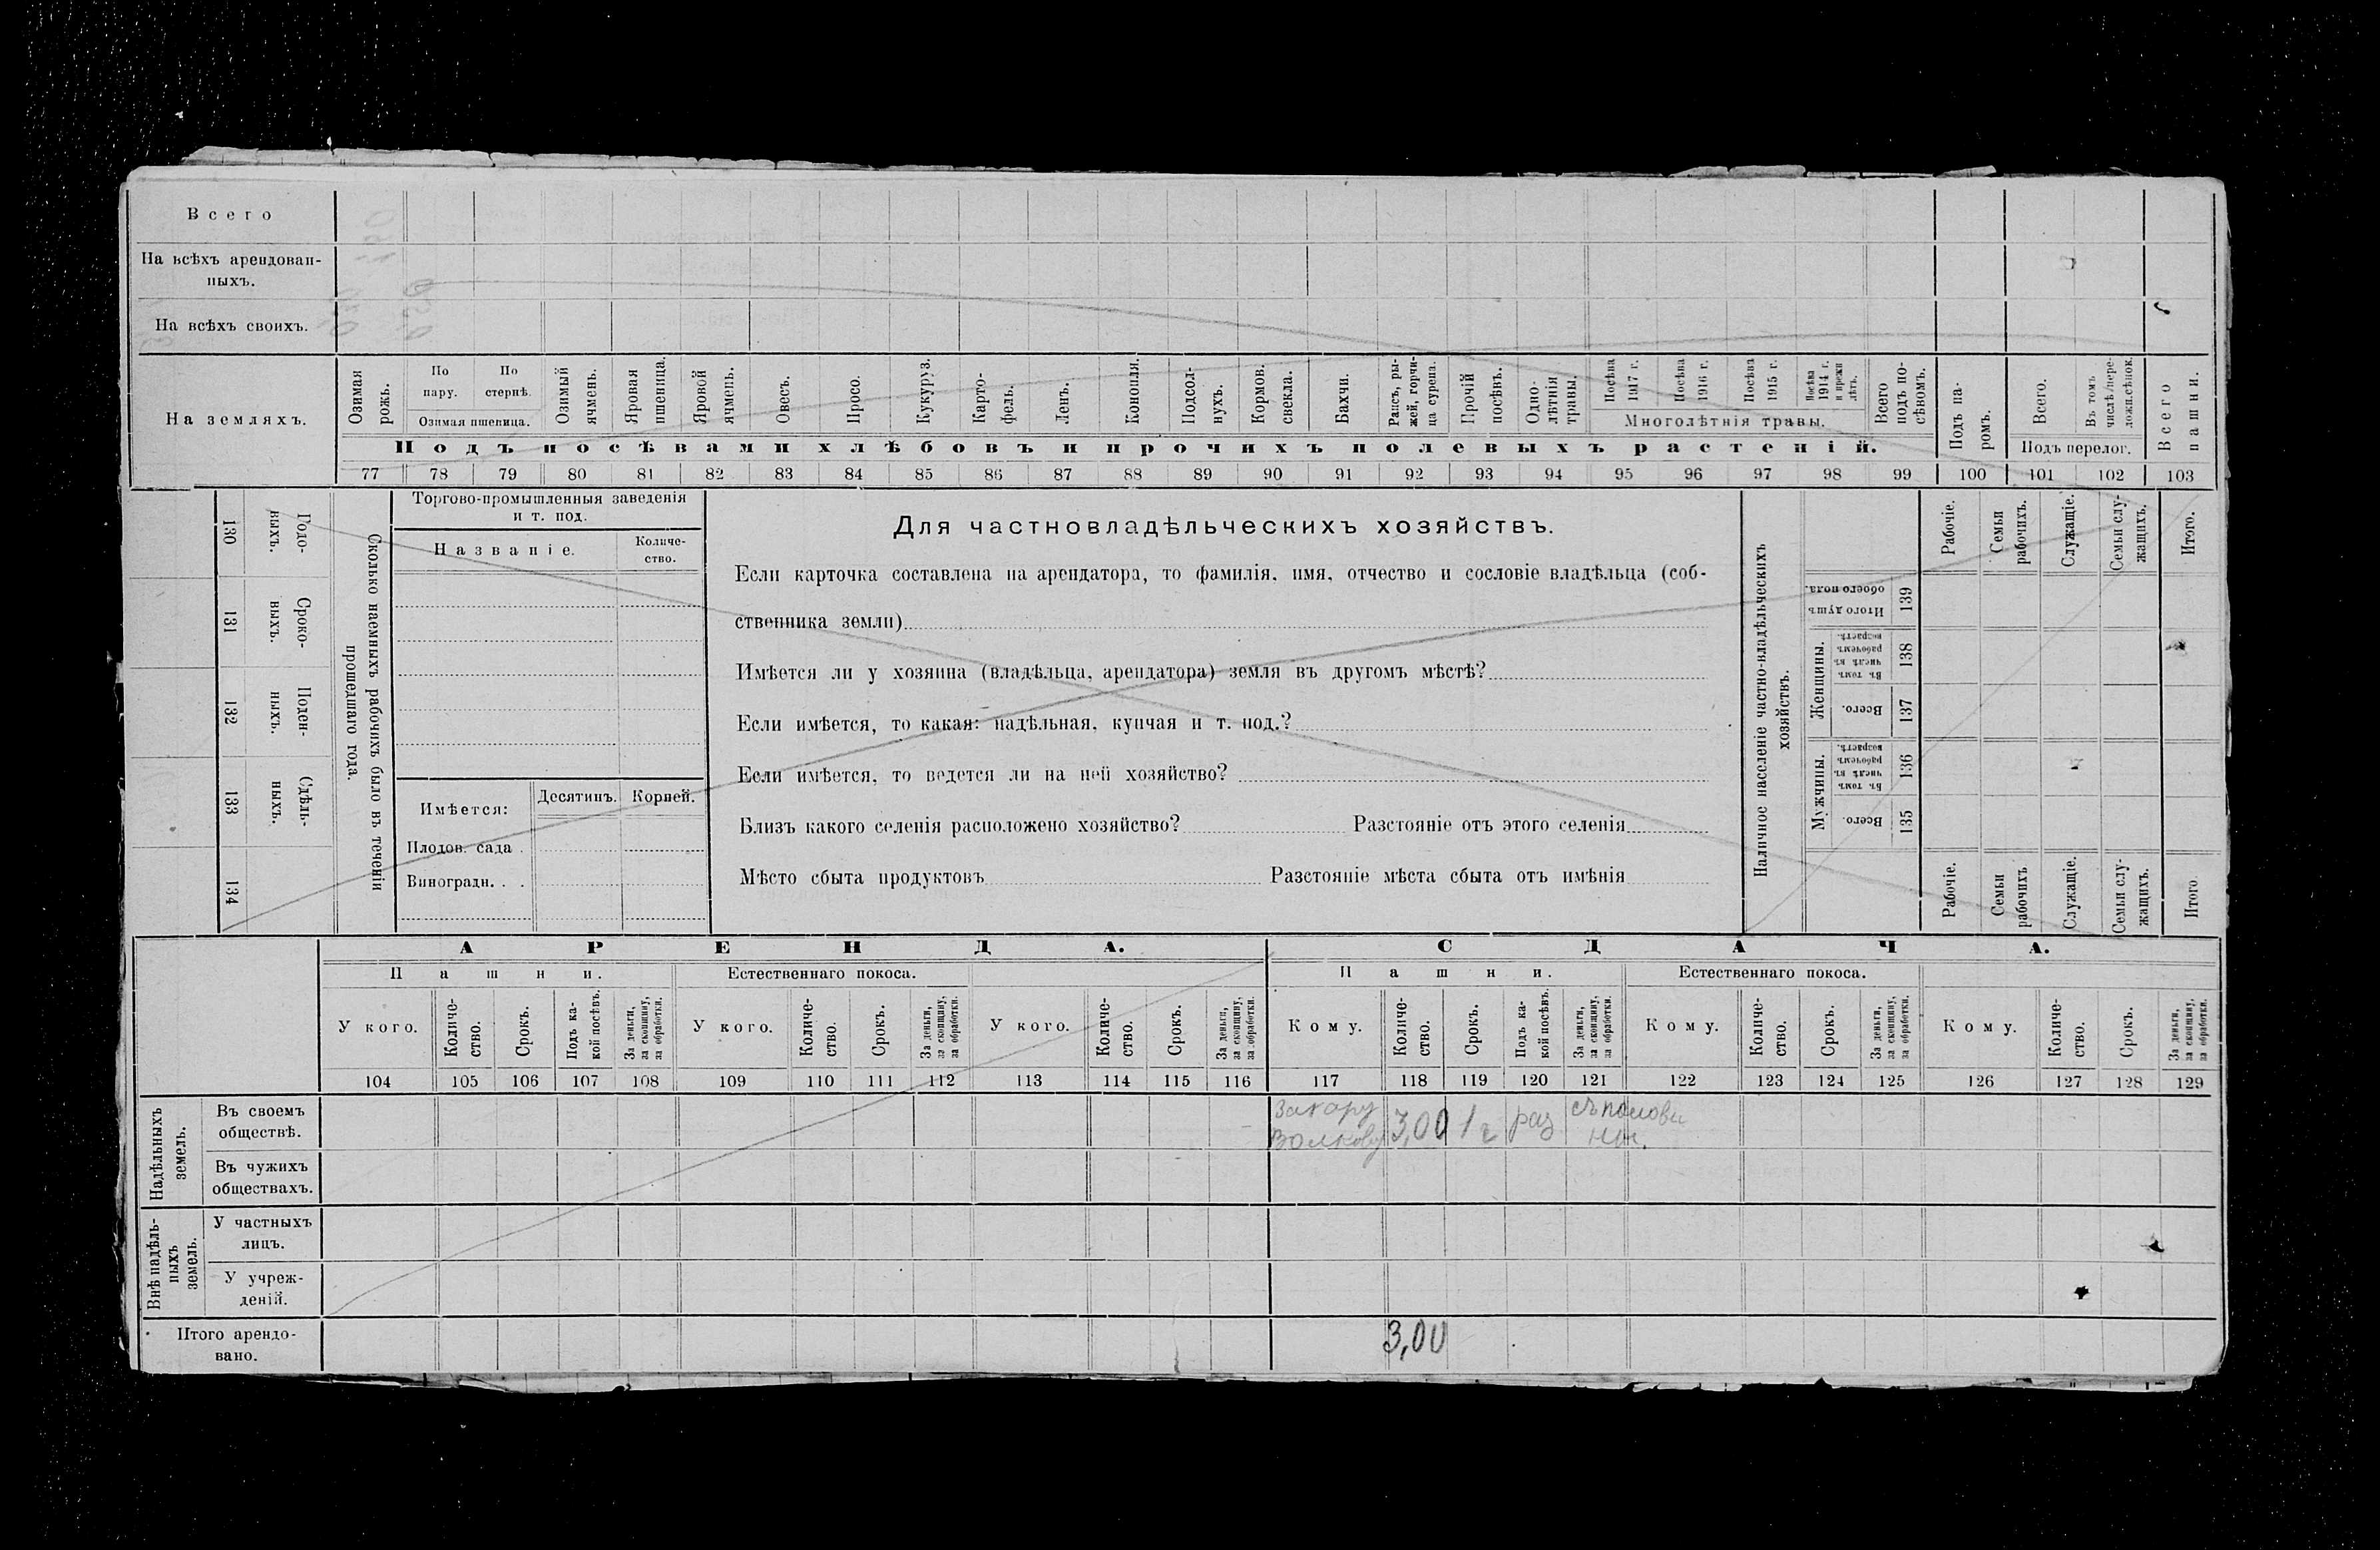 Всего
На всѣхъ арендован-
ныхъ.
На всѣхъ своихъ.
На земляхъ.
Озимая рожь.
По пару.
По стернѣ.
Озимая пшеница.
Озимый ячмень.
Яровая пшеница.
Яровой ячмень.
Овесъ.
Просо.
Кукуруз.
Карто-
фель.
Ленъ.
Конопля.
Подсол-
нухъ.
Кормов.
свекла.
Бахчи.
Рапсъ, ры-
жей, горчи-
ца сурепа.
Прочій
посѣвъ.
Одно-
лѣтнія
травы.
Посѣва
1917 г.
Посѣва
1916 г.
Посѣва
1915 г.
Посѣва
1914 г.
и прежн
лѣтъ.
Многолѣтнія травы.
Всего
подъ по-
сѣвомъ.
Подъ па-
ромъ.
Всего.
Въ томъ
числѣ пере-
ложн.сѣнок.
Подъ перелог.
Всего
пашни.
Подъ посѣвами хлѣбовъ и прочихъ полевыхъ растеній.
77 78 79 80 81 82 83 84 85 86 87 88 89 90 91 92 93 94 95 96 97 98 99 100 101 102 103
130 Годо-
выхъ.
131 Сроко-
ныхъ.
132 Поден-
ныхъ.
133 Сдѣль-
ныхъ.
134
Сколько наемныхъ рабочихъ было въ теченіи
прошедшаго года.
Торгово-промышленныя заведенія
и т. под.
Названіе.
Количе-
ство.
Имѣется:
Десятинъ.
Корней.
Плодов. сада .
Виноградн. . .
Для частновладѣльческихъ хозяйствъ.
Если карточка составлена на арендатора, то фамилія, имя, отчество и сословіе владѣльца (соб-
ственника земли)
Имѣется ли у хозяина (владѣльца, арендатора) земля въ другомъ мѣстѣ?
Если имѣется, то какая: надѣльная, купчая и т. под.?
Если имѣется, то ведется ли на ней хозяйство?
Близъ какого селенія расположено хозяйство? Разстояніе отъ этого селенія
Мѣсто сбыта продуктовъ Разстояніе мѣста сбыта отъ имѣнія
Наличное населеніе частно-владѣльческихъ
хозяйствъ.
Рабочіе.
Семьи
рабочихъ.
Служащіе.
Семьи слу-
жащихъ.
Итого.
Итого душъ
обоего пола.
139
Женщины.
Въ томъ
числѣ въ
рабочемъ
возрастѣ.
138
Всего.
137
Мужчины.
Въ томъ
числѣ въ
рабочемъ
возрастѣ.
136
Всего.
135
Рабочіе.
Семьи
рабочихъ
Служащіе.
Семьи слу-
жащихъ.
Итого
АРЕНДА.
СДАЧА.
Пашни.
Естественнаго покоса.
Пашни.
Естественнаго покоса.
У кого.
Количе-
ство.
Срокъ.
Подъ ка-
кой посѣвъ.
За деньги,
за скопщину,
за обработки.
У кого.
Количе-
ство.
Срокъ.
За деньги,
за скопщину,
за обработки.
У кого.
Количе-
ство.
Срокъ.
За деньги,
за скопщину,
за обработки.
Кому.
Количе-
ство.
Срокъ.
Подъ ка-
кой посѣвъ.
За деньги,
за скопщину,
за обработки.
Кому.
Количе-
ство.
Срокъ.
За деньги,
за скопщину,
за обработки.
Кому.
Количе-
ство.
Срокъ.
За деньги,
за скопщину,
за обработки.
104 105 106 107 108 109 110 111 112 113 114 115 116 117 118 119 120 121 122 123 124 125 126 127 128 129
Надѣльныхъ
земель.
Въ своемъ
обществѣ.
Захару
Волкову 3,00 1 г раз
съ полови
ны.
Въ чужихъ
обществахъ.
Внѣ надѣль-
ныхъ
земель.
У частныхъ
лицъ.
У учреж-
деній.
Итого арендо-
вано.
3,00